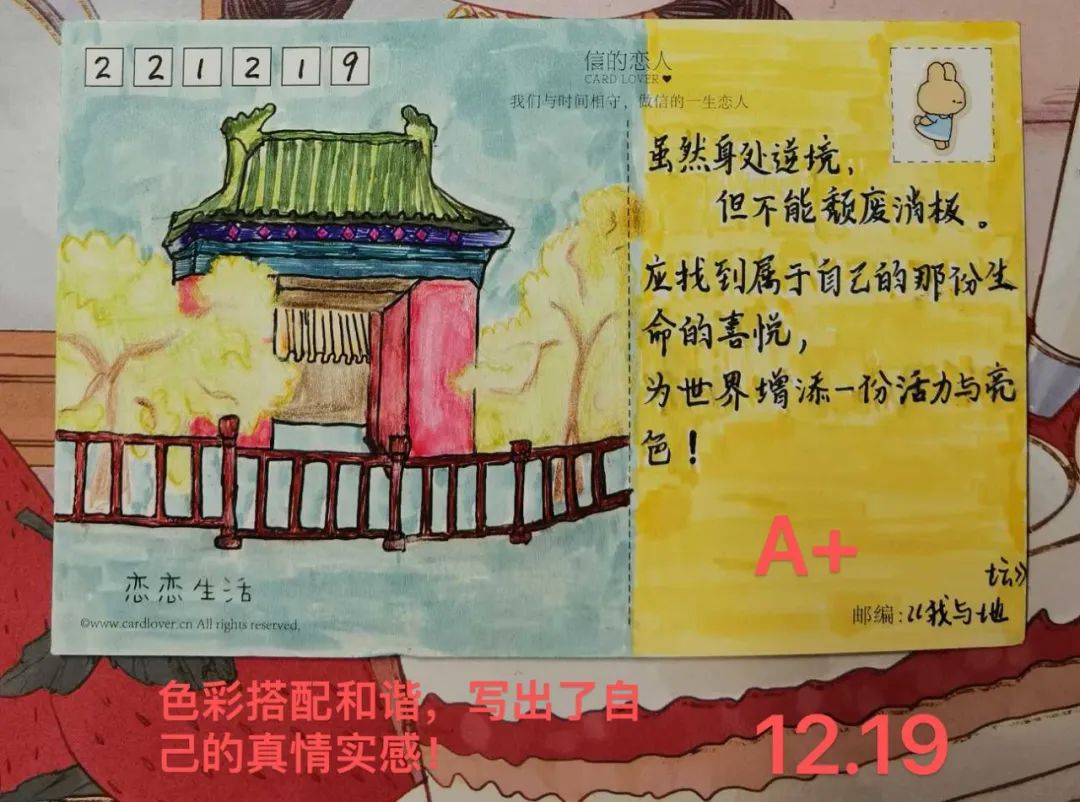 221219
信的恋人
CARD LOVER
我们与时间相守，做信的一生恋人
虽然身处逆境，
但不能颓废消极。
应找到属于自己的那份生
命的喜悦，
为世界增添一份活力与亮
色！
A+
邮编：《我与地
坛》
恋恋生活
©www.cardlover.cn All rights reserved.
色彩搭配和谐，写出了自
己的真情实感！
12.19